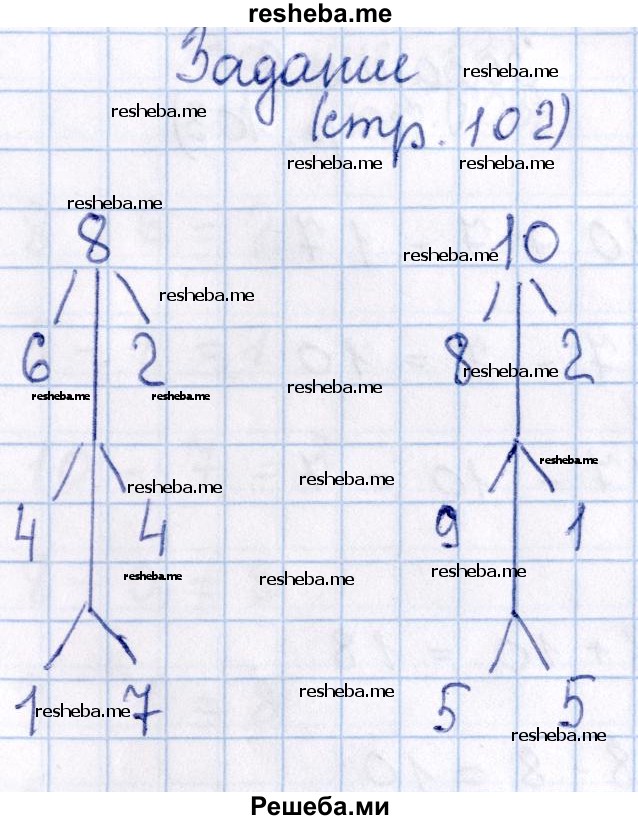 resheba.me
Задание
resheba.me
resheba.me
(стр. 102)
resheba.me resheba.me
resheba.me
8 10
resheba.me
resheba.me
6 2 8 2
resheba.me
resheba.me resheba.me
resheba.me
resheba.me
resheba.me
resheba.me
4 4 9 1
resheba.me
resheba.me
resheba.me
1 7 5 5
resheba.me
resheba.me
resheba.me
Решеба.ми